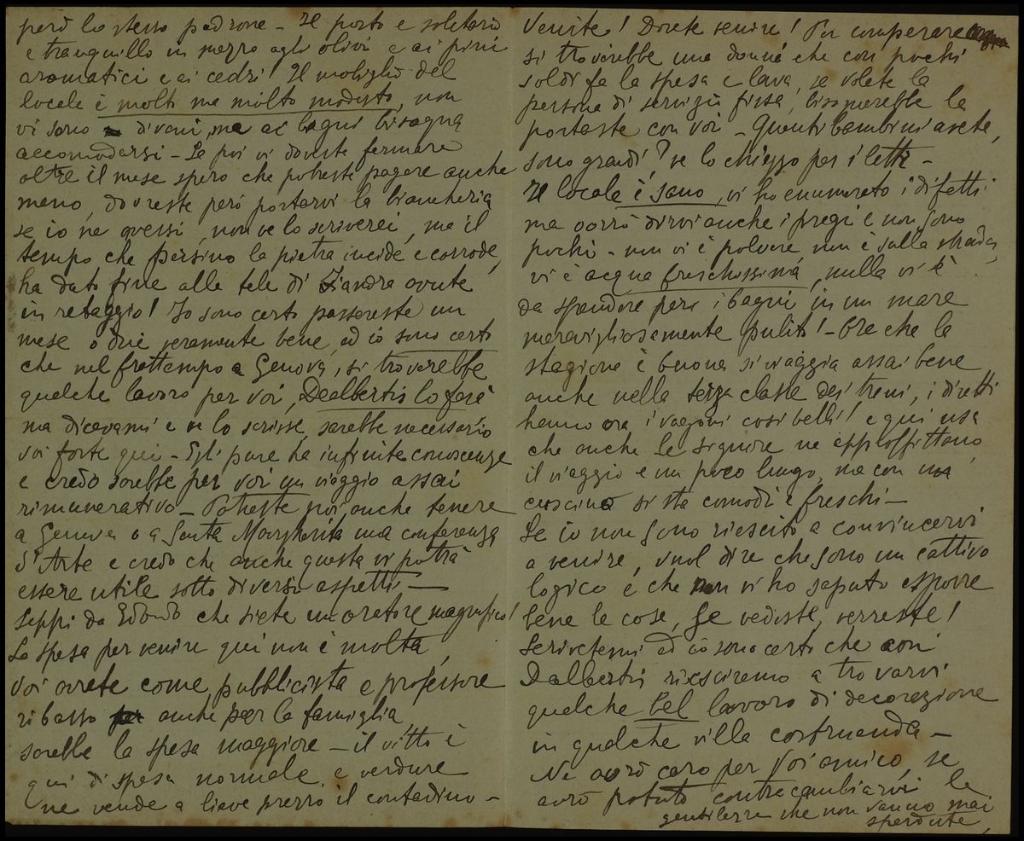 però lo stesso padrone - Il posto è solitario
e tranquillo in mezzo agli olivi e ai pini
aromatici e ai cedri! Il mobiglio del
locale è molto ma molto modesto, non
vi sono divani, ma ai bagni bisogna
accomodarsi - Se poi vi doveste fermare
oltre il mese spero che potreste pagare anche
meno, dovreste però portarvi la biancheria
se io ne avessi, non ve lo scriverei, ma il
tempo che persino la pietra incide e corrode,
ha dato fine alle tele di Fiandra avute
in retaggio! Io sono certo passereste un
mese o due veramente bene, ed io sono certo
che nel frattempo a Genova, si troverebbe
qualche lavoro per voi, Dealbertis lo farà
ma dicevami e ve lo scrisse, sarebbe necessario
voi foste qui - Egli pure ha infinite conoscenze
e credo sarebbe per voi un viaggio assai
rimunerativo - Potreste poi anche tenere
a Genova o a Santa Margherita una conferenza
d'Arte e credo che anche questa vi potrà
essere utile sotto diversi aspetti -
Seppi da Edoardo che siete un oratore magnifico!
La spesa per venire qui non è molta,
Voi avrete come pubblicista e professore
ribasso anche per la famiglia,
sarebbe la spesa maggiore - il vitto è
qui di spesa normale e verdure
ne vende a lieve prezzo il contadino -
Venite! Dovete venire! Per comperare
si troverebbe una donna che con pochi
soldi fa la spesa e lava, se volete la
persona di servizio fissa, bisognerebbe la
portaste con voi - Quanti bambini avete,
sono grandi? ve lo chieggo per i letti -
Il locale è sano, vi ho enumerato i difetti
ma vorrò dirvi anche i pregi e non sono
pochi - non vi è polvere, non è sulla strada,
vi è acqua freschissima, nulla vi è
da spendere per i bagni in un mare
meravigliosamente pulito! - Ora che la
stagione è buona si viaggia assai bene
anche nella terza classe dei treni, i diretti
hanno ora i vagoni così belli! e qui usa
che anche le signore ne approfittano,
il viaggio è un poco lungo, ma con un
cuscino si sta comodi e freschi -
Se io non sono riescito a convincervi
a venire, vuol dire che sono un cattivo
logico e che non vi ho saputo esporre
bene le cose, se vedeste, verreste!
Scrivetemi ed io sono certo che con
Dalbertis riesciremo a trovarvi
qualche bel lavoro di decorazione
in qualche villa costruenda -
Ne avrò caro per Voi amico, se
avrò potuto contracambiarvi le
gentilezze che non vanno mai
sperdute,